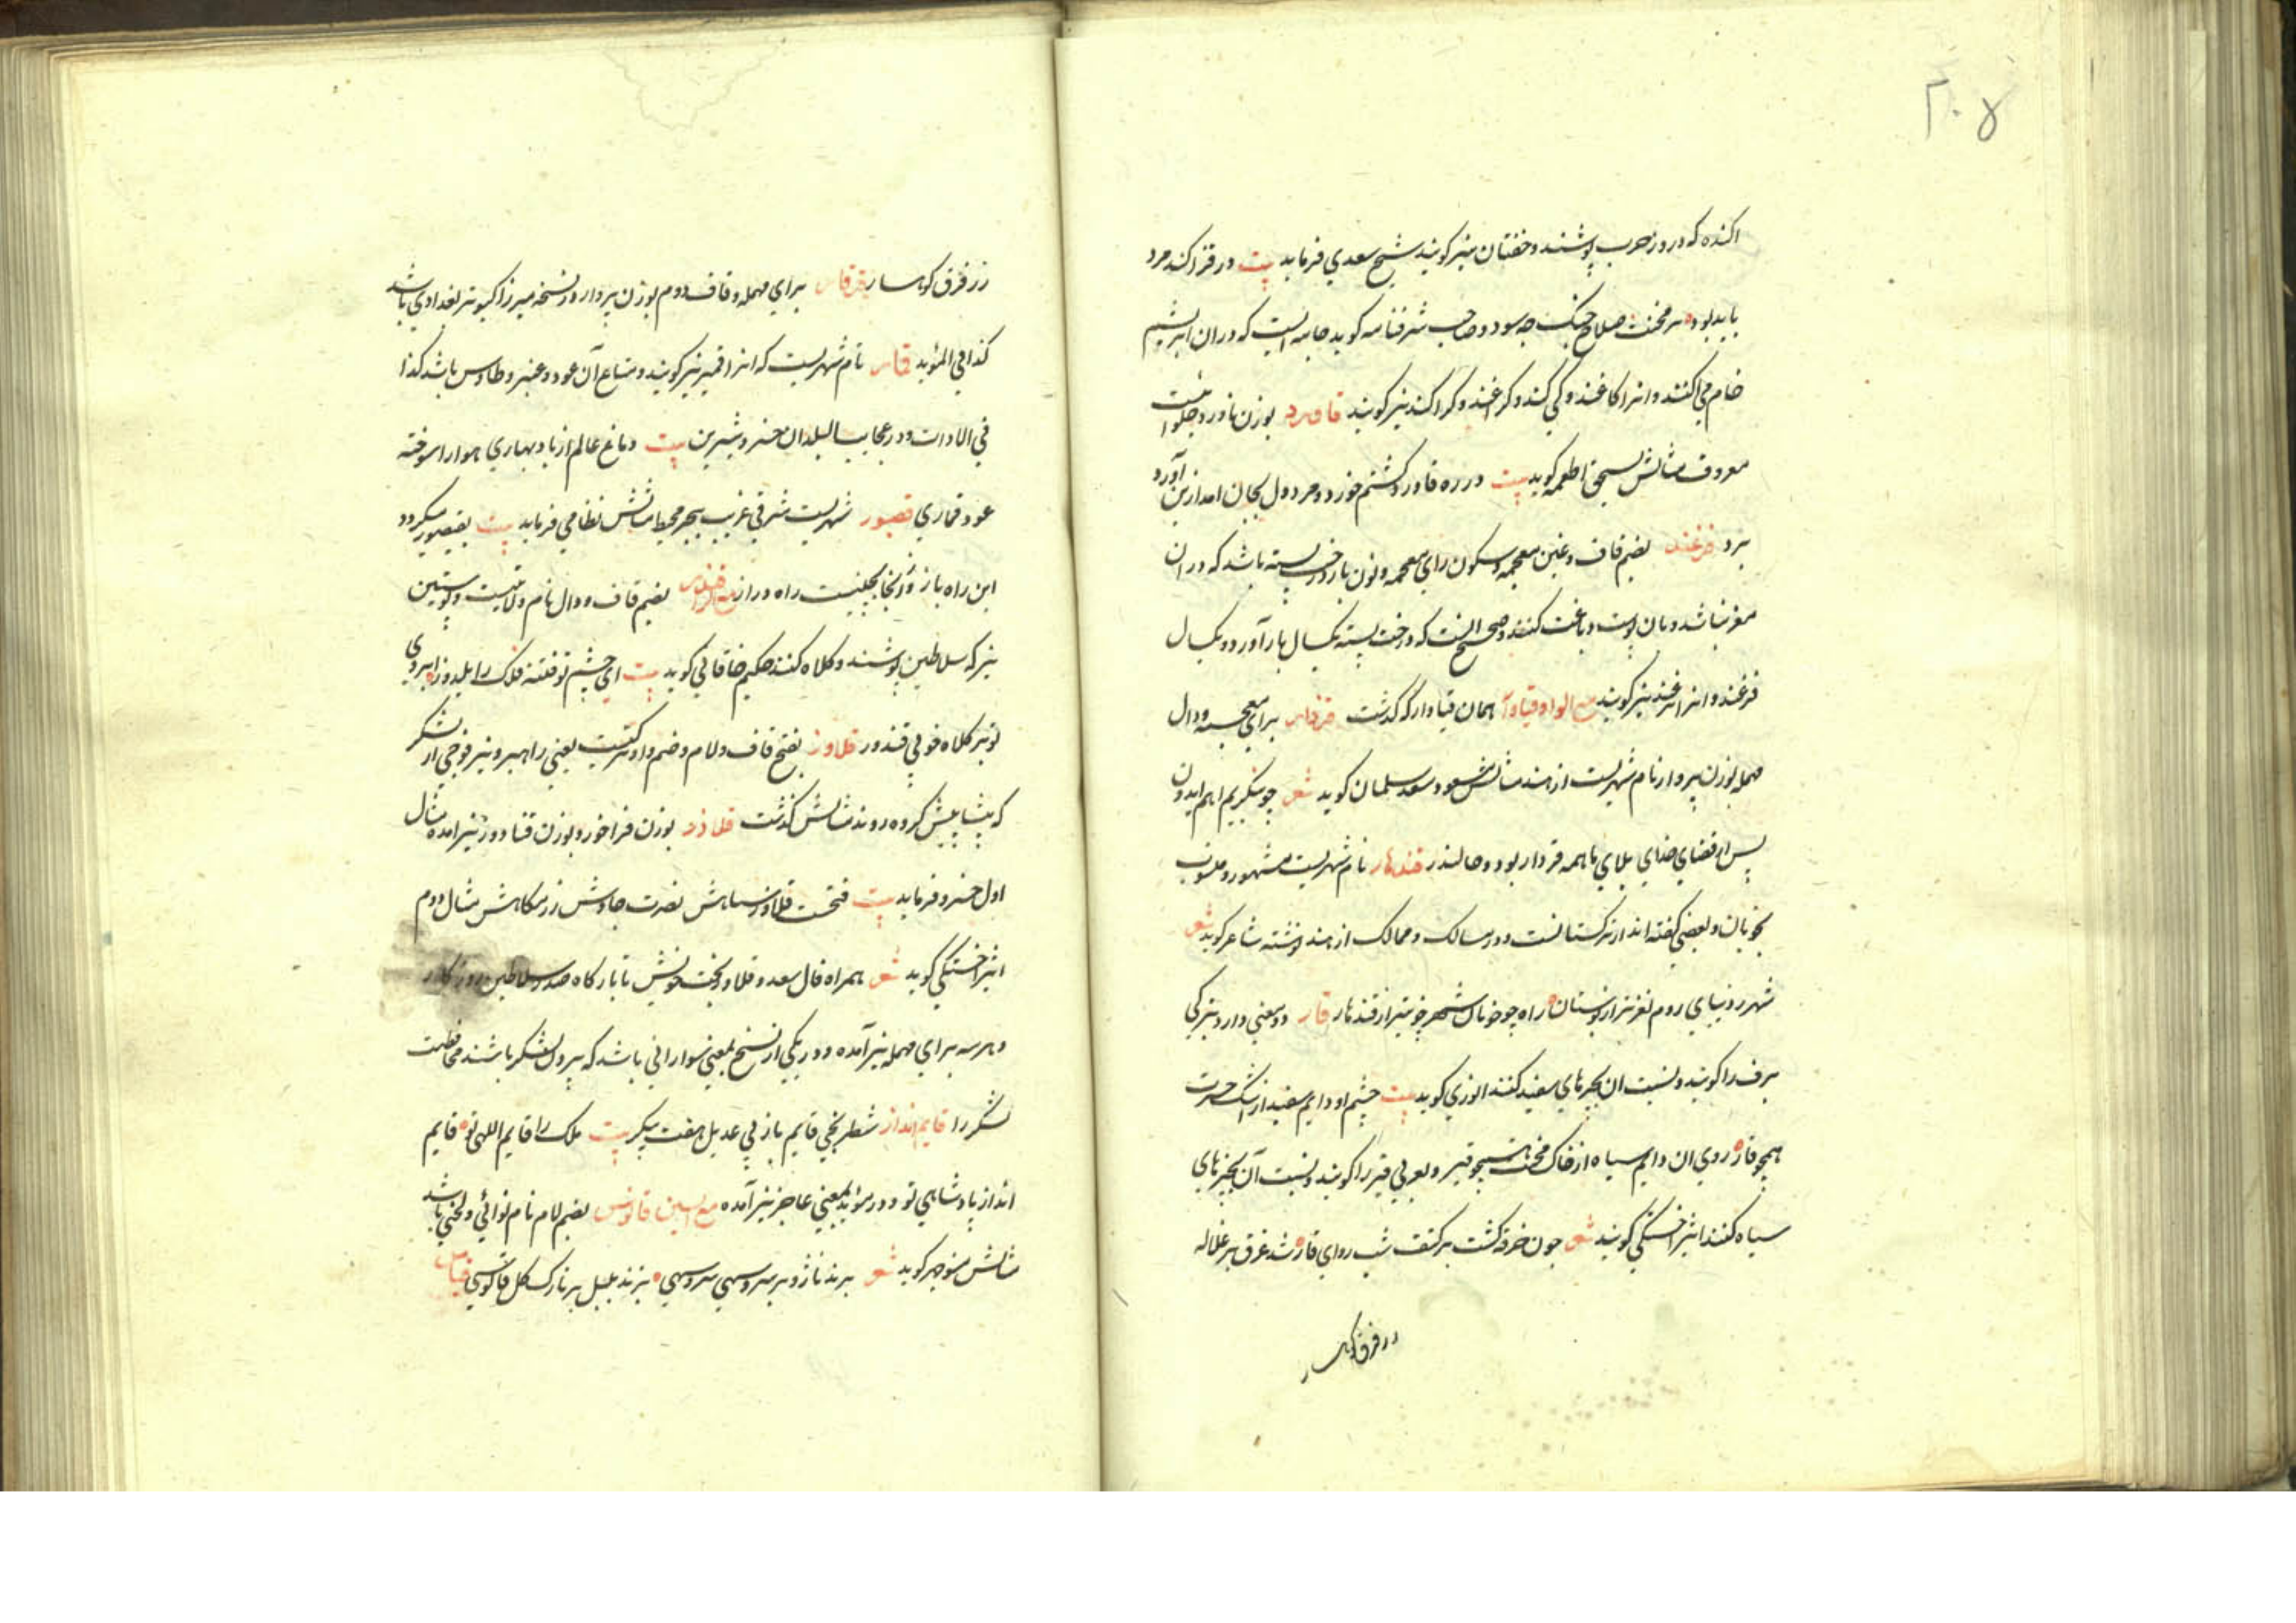 ۲۰۵
اکنده که در روز حرب پوشند و خفتان نیز گویند شیخ سعدی فرماید بیت در قزاکند مرد
باید بود بر مخنث صلاح جنک چه سود و صاحب شرفنامه گوید جامه ایست که دران ابریشم
خام می اکنند و انرا کاغند و کژاکند نیز گویند قاورد بوزن ناورد حلوا ئیست
معروف مثالش بسحق اطعمه گوید بیت در ره قاورد کشتم خورد و مرد دل بجان امد ازین آورد
برد قزغند بضم قاف و غین معجمه و سکون زای معجمه و نون بار درخت پسته باشد که دران
مغز نباشد و بان پوست دباغت کنند و صحیح انست که درخت پسته یکسال بار آورد و یکسال
قزغند و انرا بزغند نیز گویند مع الواو قبادار همان قبادار که گذشت قزدار برای معجمه و دال
مهمله بوزن پروار نام شهریست از هند مثالش مسعود سعد سلمان گوید شعر چو بنگریم
پس از قضای خدای بلای ما همه قزدار بود و جالندر قندهار نام شهریست مشهور و منسوب
بخوبان و بعضی گفته اند از ترکستانست و در مسالک و ممالک از هند نوشته شاعر گوید شعر
شهر روم نغزتر از بوستان راه چو خوبان خوبتر از قندهار قار دو معنی دارد بترکی
برف را گویند و نسبت ان بچیزهای سفید کنند انوری گوید بیت چشم او دایم سفید از اشک حسرت
همچو قار روی ان دایم سیاه از خاک محنت همچو قیر و بعربی قیر را گویند و نسبت آن بچیزهای
سیاه کنند اثیر اخسیکتی گویند شعر چون خرقه گشت بر کتف شب ردای قار شد غرق بر غلاله
زر فرق کوهسار
زر فرق کوهسار قرقار برای مهمله و قاف دوم بوزن پروار در نسخه میرزا کبوتر بغدادی باشد
کذا فی المؤید قمار نام شهریست که انرا قمیر نیز گویند و متاع آن عود و عنبر و طاوس باشد کذا
فی الادات و در عجایب البلدان خسرو شیرین بیت دماغ عالم از باد بهاری هوا را سوخته
عود قماری قیصور شهریست شرقی غریب بحر محیط مثالش نظامی فرماید بیت بقیصور میکرد
این راه باز وز انجا بچینست راه دراز بضم قاف و دال نام ولایتیست و پوستین
نیز که سلاطین پوشند و کلاه کنند حکیم خاقانی گوید بیت ای چشم تو فتنه فلک را ابروی
تو نیز کلاه قندور قلاوز بفتح قاف و لام و ضم واو ترکیست یعنی راهبر و نیز فوجی از لشکر
که پیشاپیش گروه روند مثالش گذشت قلاوز بوزن فراخور و بوزن نیز امده مثال
اول خسرو فرماید بیت فتحت قلاوز سپاهش نصرت چاوش مثال دوم
اثیر اخسیکتی گوید شعر همراه فال سعد و قلاوز بخت خویش تا بارگاه صدر سلاطین روزگار
و هر سه برای مهمله نیز آمده و در یکی از نسخ بمعنی سوارانی باشد که بیرون لشکر باشند محافظت
لشکر را قایم انداز شطرنجی قایم باز فی عدیل هفت پیکر بیت ملک را قایم اللهی تو قایم
انداز پادشاهی تو و در مؤید بمعنی عاجز نیز آمده مع السین قالوس بضم لام نام نوائی و لحنی باشد
مثالش منوچهر گوید شعر برزند نارو بر سرو سهی سرو سهی برزند بلبل بر تارک گل قالوسی